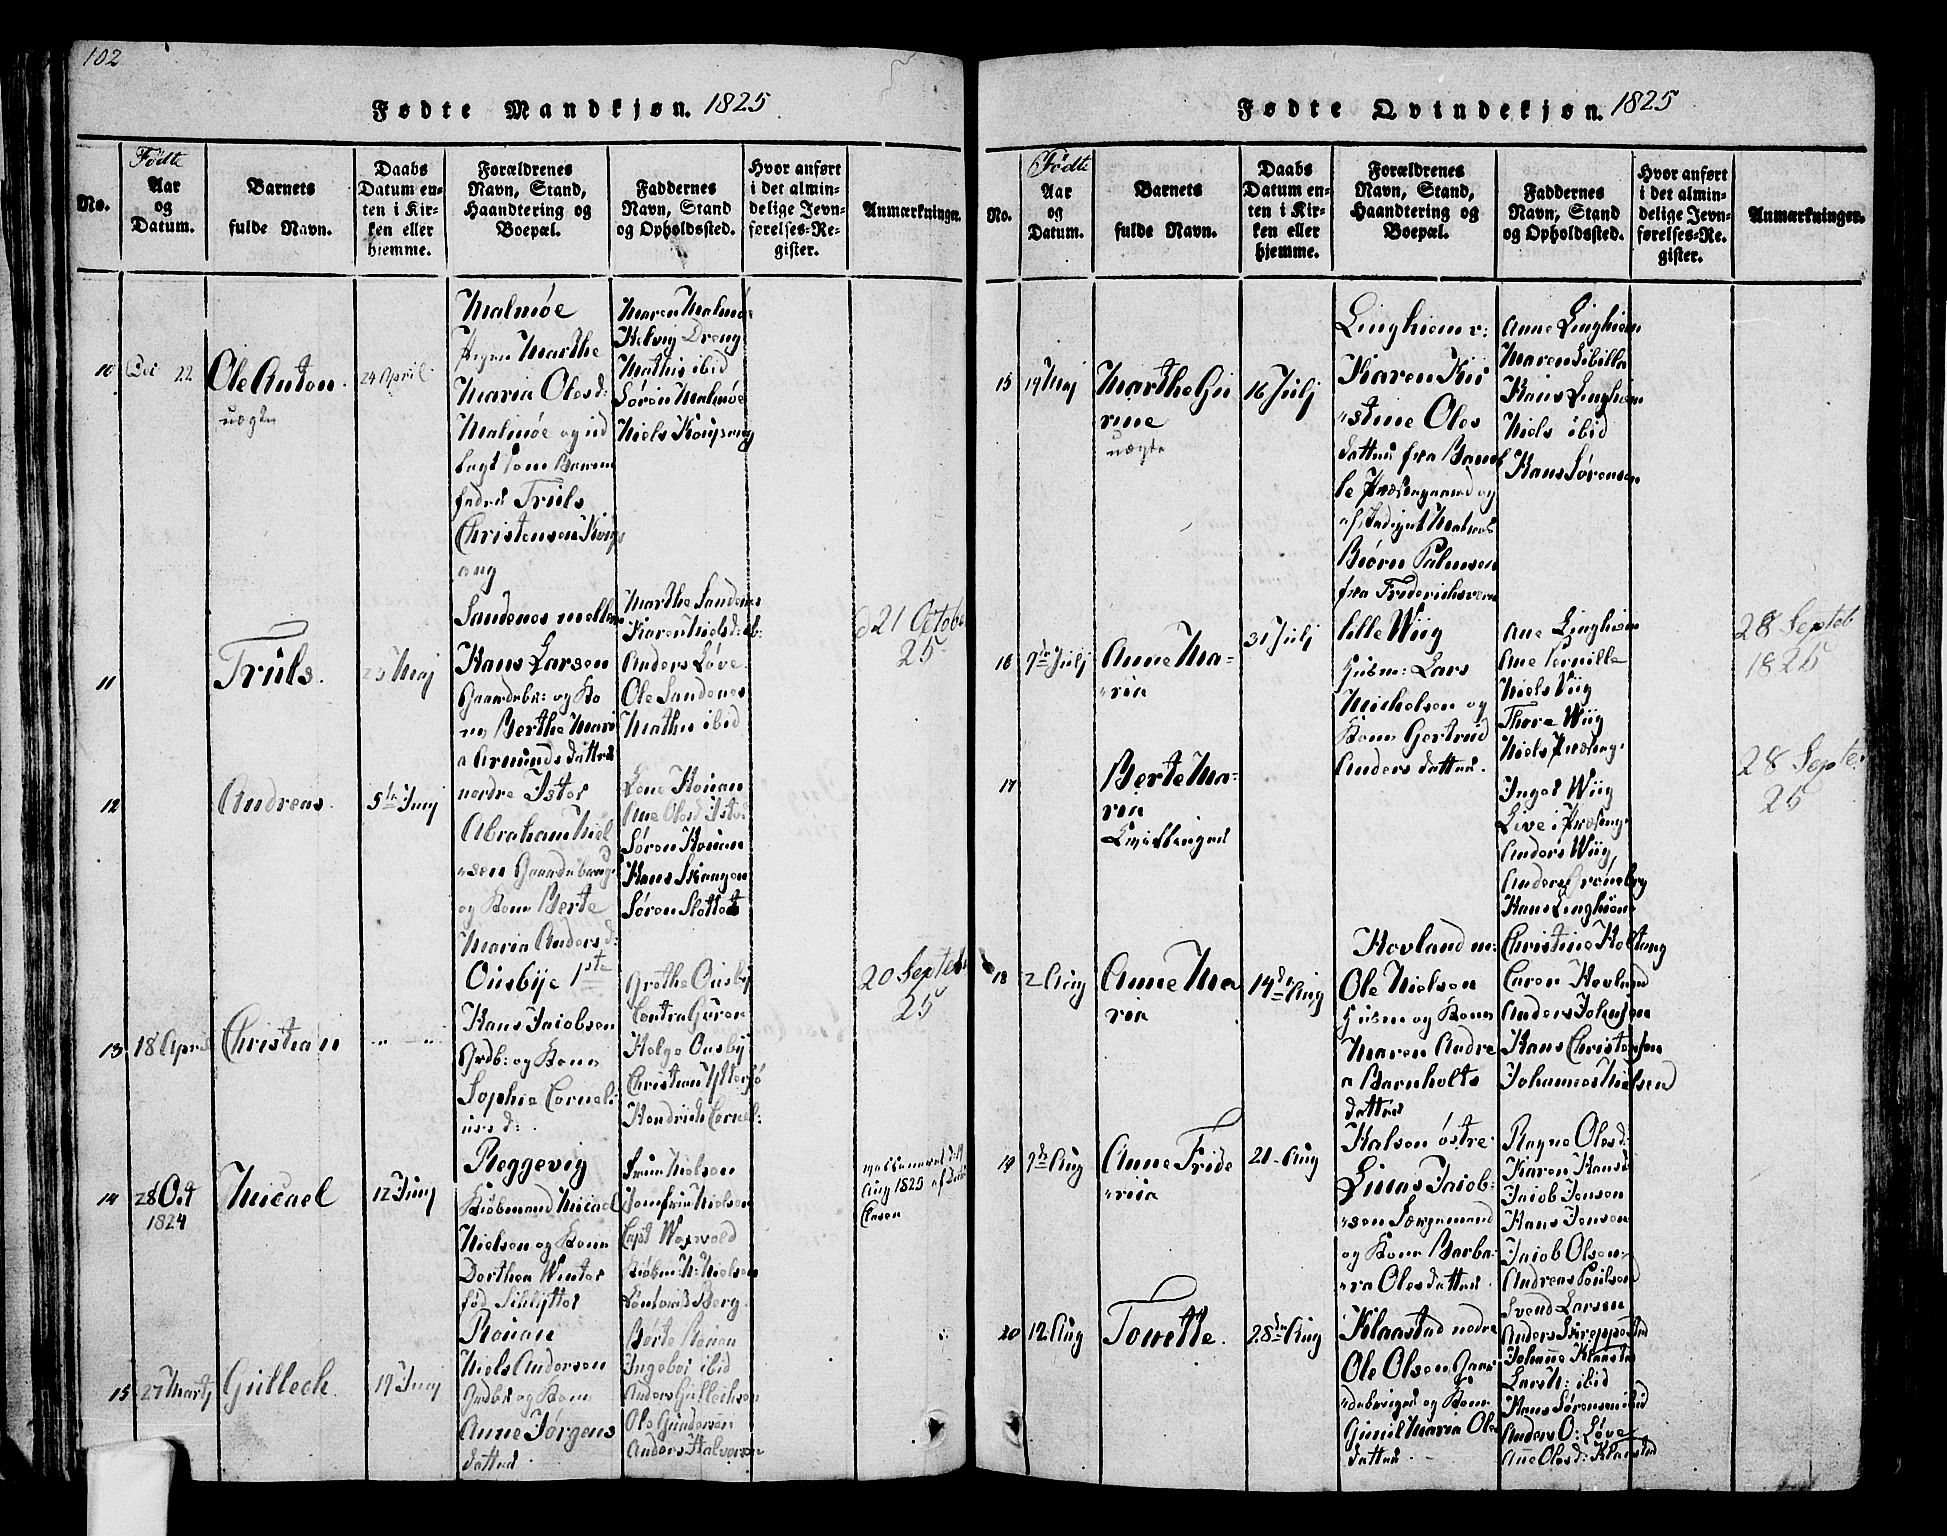 102
Fødte Mandkjøn. 1825
No.
Fødte
Aar
og
Datum.
Barnets
fulde Navn.
Daabs
Datum en-
ten i Kir-
ken eller
hjemme.
Forældrenes
Navn, Stand,
Haandtering og
Boepæl.
Faddernes
Navn, Stand
og Opholdssted.
Hvor anført
i det almin-
delige Jevn-
førelses-Re-
gister.
Anmærkninger.
10
22
Ole Anton.
uægte
24 April
Malmøe
Pigen Marthe
Maria Olesd:
Malmøe og ud
lagt som Barne
fader Truls
Christensen Kon
ang
Maren Malmø
Helvig Dreng
Mathis ibid
Søren Malmøe
Niels
11
Truls.
23 Maj
Sandenes mellem
Hans Larsen
Gaardebr: og Ko
ne Berthe Mari
a Amundsdatter
Marthe Sandenes
Karen Nielsd: ib:
Anders Løve
Ole Sandenes
Mathis ibid
d 21 Octobr
25
12
Andreas.
5te Junj
nordre Istre
Abraham Niel
sen Gaardebrug.
og Kone Berte
Maria Andersd:
Lene Rouan
Ane Olesd Istre
Søren Rouan
Hans Skougen
Søren Slottet
13
18 April
Christian
Ousbye 1ste
Hans Jacobsen
Grdb: og Kone
Sophie Corneli
usd:
Grethe Ousby
Helge Ousby
Christian Ytersø
Hendrich Cornel:
20 Septebr
25
14
28 Oct
1824
Micael
12 Junj
Reggevig
Kiøbmand Micael
Nielsen og Kone
Dorthea Winter
fød Schlytter
Frue Nielsen
Jomfrue Nielsen
Capt
Kiøbm: N: Nielsen
Berg
Aug 1825 af
15
27 Martj
Gulleck.
19 Junj
Rouan
Niels Andersen
Grdbr og Kone
Anne Jørgens
datter
Børte Rouan
Ingebor ibid
Anders Gullechsen
Ole Gundersen
Anders Halvorsen
Fødte Qvindekjøn. 1825
No.
Fødte
Aar
og
Datum.
Barnets
fulde Navn.
Daabs
Datum en-
ten i Kir-
ken eller
hjemme.
Forældrenes
Navn, Stand,
Haandtering og
Boepæl.
Faddernes
Navn, Stand
og Opholdssted.
Hvor anført
i det almin-
delige Jevn-
førelses-Re-
gister.
Anmærkninger.
15
19 Maj
Marthe Gu
rine
uægte
16 Julj
Linghiem v:
Karen Kir
stine Oles
datter fra Bamb
le Præsegaard og
Matros
Biørn Palmsen
fra Friderichsværn
Anne Linghiem
Maren Sibilla
Hans Linghiem
Niels ibid
Hans Sørensen
16
9de Julj
Anne Ma-
ria
31 Julj
lille Wiig
Husm: Lars
Michelsen og
Kone Gertrud
Anders datter.
Ane Linghiem
Ane Pernille
Niels Viig
Thore Wiig
Niels Præseg.
28 Septeb
1825
17
Berte Ma-
ria
Tvillinger
Inger Wiig
Live i Præseg.
Anders Wiig
Anders Grøneberg
Hans Linghiem
28 Septe
25
18
2 Aug
Anne Ma
ria
14de Aug
Hovland m:
Ole Nielsen
Husm og Kone
Maren Andre
a Barnholts
datter
Christine Holtung
Caren Hovland
Anders Johnsen
Hans Christensen
Johannes Nielsen
19
9de Aug
Anne Fride
ricia
21 Aug
Halsen østre
Linus Jacob-
sen Sørgemand
og Kone Barba-
ra Olesdatter
Ragne Olesd:
Karen Hansd
Jacob Jensen
Hans Jensen
Jacob Olsen
Andreas Poulsen
20
12 Aug
Tovette.
28de Aug
Klaastad nedre
Ole Olsen Gaar
debruger og Kone
Gunil Maria Oles
datter
Svend Larsen
Anders Skreppestad
Johanne Klaastad
Lars N: ibid
Hans Sørensen ibid
Anders O: Løve
Ane Olesd: Klaastad